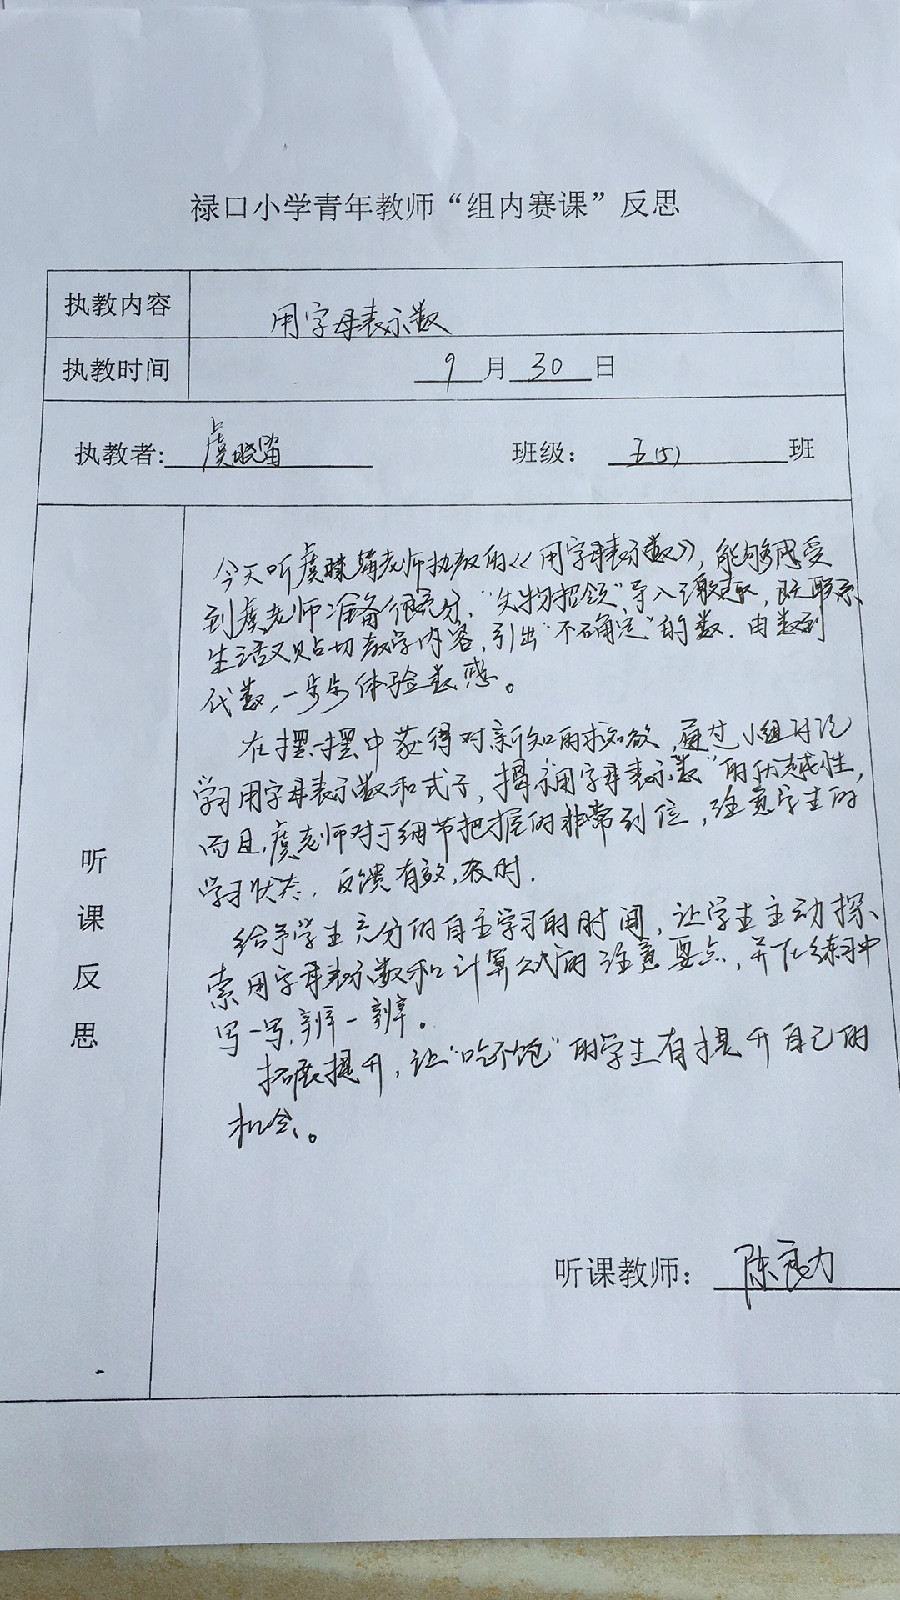 禄口小学青年教师“组内赛课”反思
执教内容 用字母表示数
执教时间 9月30日
执教者: 虞晓 班级: 五(5)班
听课反思
今天听虞 老师执教的《用字母表示数》，能够感受
到虞老师准备很充分，“失物招领”导入 ，既联系
生活又贴切教学内容，引出“不确定”的数．由数到
代数，一步步体验数感。
在摆一摆中获得对新知的求知欲，通过小组讨论
学习用字母表示数和式子，揭示用字母表示数”的优越性，
而且，虞老师对于细节把握的非常到位，注意学生的
学习状态．反馈有效，及时．
给予学生充分的自主学习的时间，让学生主动探
索用字母表示数和计算公式的注意要点，并在练习中
写一写，辨一辨。
拓展提升，让“吃不饱”的学生有提升自己的
机会。
听课教师: 陈 力